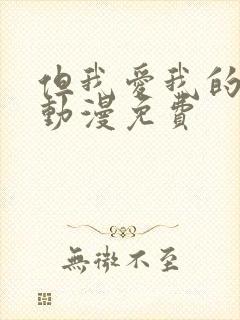 但我愛我的
動漫免費
無微不至